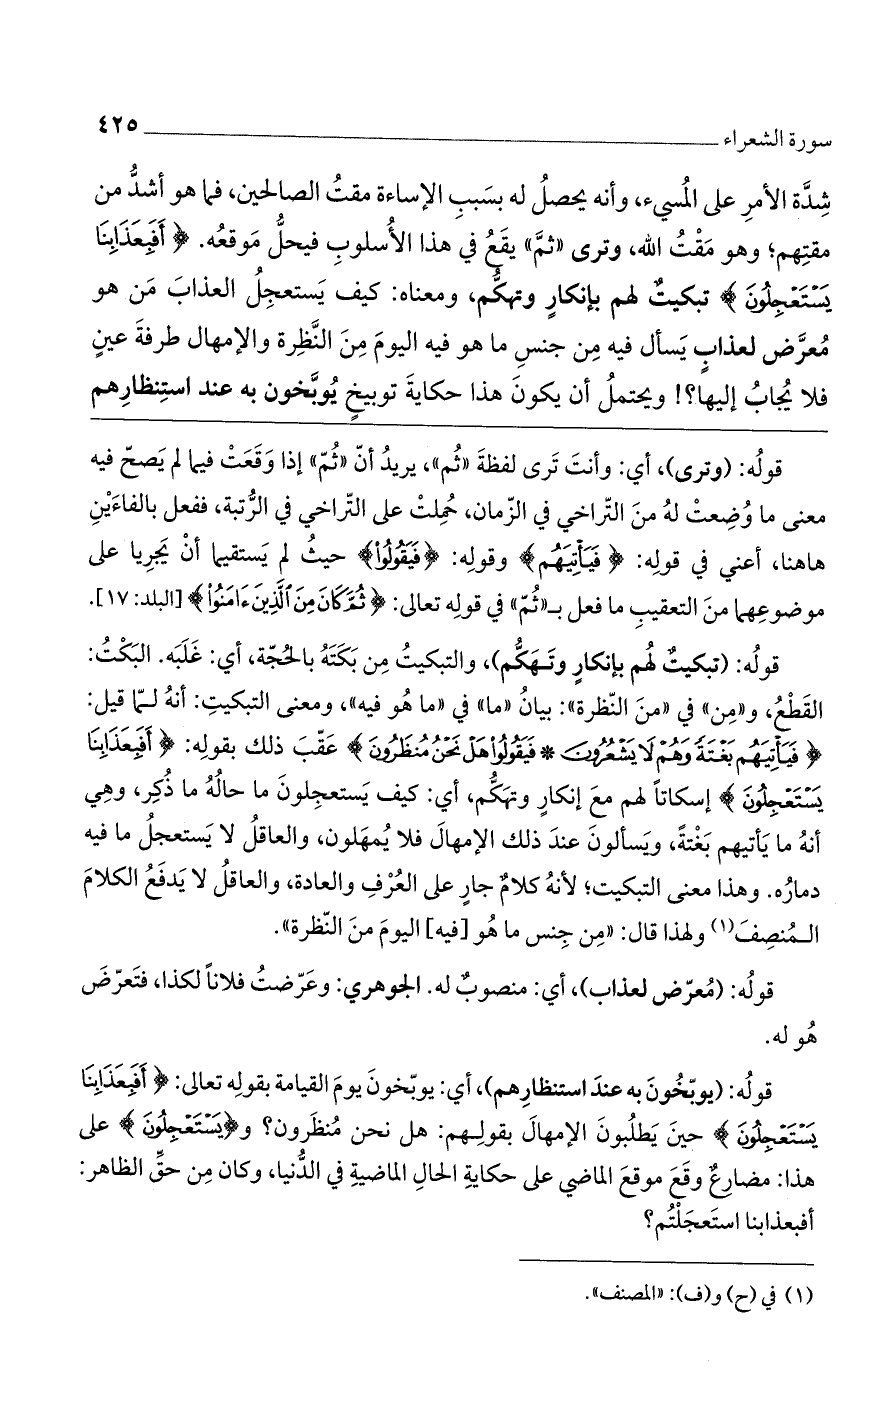 سورة الشعراء ٤٢٥
شِدَّة الأمرِ على المُسيء، وأنه يحصلُ له بسَببِ الإساءة مقتُ الصالحين، فما هو أشدُّ من
مقتِهم؛ وهو مَقْتُ الله، وترى «ثمَّ» يقَعُ في هذا الأُسلوبِ فيحلُّ مَوقعُه. ﴿ أَفَبِعَذَابِنَا
يَسْتَعْجِلُونَ ﴾ تبكيتٌ لهم بإنكارٍ وتهكُّم، ومعناه: كيف يَستعجِلُ العذابَ مَن هو
مُعرَّض لعذابٍ يَسأل فيه مِن جنسِ ما هو فيه اليومَ مِنَ النَّظِرة والإمهال طرفةَ عينٍ
فلا يُجابُ إليها؟! ويحتملُ أن يكونَ هذا حكايةَ توبيخٍ يُوبَّخون به عند استِنظارِهم
قولُه: (وترى)، أي: وأنتَ تَرى لفظةَ «ثُم»، يريدُ أنّ «ثُمّ» إذا وَقَعَتْ فيما لم يَصحّ فيه
معنى ما وُضِعتْ لهُ منَ التّراخي في الزّمان، حُمِلتْ على التّراخي في الرُّتبة، ففعل بالفاءَيْنِ
هاهنا، أعني في قولِه: ﴿ فَيَأْتِيَهُم ﴾ وقولِه: ﴿فَيَقُولُوا۟﴾ حيثُ لم يَستقيما أنْ يَجرِيا على
موضوعِهما منَ التعقيبِ ما فعل بـ«ثُمّ» في قولِه تعالى: ﴿ ثُمَّ كَانَ مِنَ ٱلَّذِينَ ءَامَنُوا۟ ﴾ [البلد: ١٧].
قولُه: (تبكيتٌ لهُم بإنكارٍ وتَهكُّم)، والتبكيتُ مِن بَكَتَهُ بالحُجّة، أي: غَلَبَه. البَكْتُ:
القَطْعُ، و«مِن» في «منَ النّظرة»: بيانُ «ما» في «ما هُو فيه»، ومعنى التبكيتِ: أنهُ لـمّا قيل:
﴿ فَيَأْتِيَهُم بَغْتَةً وَهُمْ لَا يَشْعُرُونَ * فَيَقُولُوا۟ هَلْ نَحْنُ مُنظَرُونَ ﴾ عقّبَ ذلك بقولِه: ﴿ أَفَبِعَذَابِنَا
يَسْتَعْجِلُونَ ﴾ إسكاتاً لهم معَ إنكارٍ وتهكُّم، أي: كيف يَستعجلونَ ما حالُهُ ما ذُكِر، وهِي
أنهُ ما يَأتيهم بَغْتةً، ويَسألونَ عندَ ذلك الإمهالَ فلا يُمهَلون، والعاقلُ لا يَستعجلُ ما فيه
دمارُه. وهذا معنى التبكيت؛ لأنهُ كلامٌ جارٍ على العُرْفِ والعادة، والعاقلُ لا يَدفَعُ الكلامَ
الـمُنصِفَ(١) ولهذا قال: «مِن جِنس ما هُو [فيه] اليومَ منَ النّظرة».
قولُه: (مُعرّض لعذاب)، أي: منصوبٌ له. الجوهري: وعَرّضتُ فلاناً لكذا، فتَعرّضَ
هُو له.
قولُه: (يوبّخُونَ به عندَ استنظارِهم)، أي: يوبّخونَ يومَ القيامة بقولِه تعالى: ﴿ أَفَبِعَذَابِنَا
يَسْتَعْجِلُونَ ﴾ حينَ يَطلُبونَ الإمهالَ بقولِـهم: هل نحن مُنظَرون؟ و﴿يَسْتَعْجِلُونَ ﴾ على
هذا: مضارعٌ وقَعَ موقعَ الماضي على حكايةِ الحالِ الماضيةِ في الدُّنيا، وكان مِن حقِّ الظاهر:
أفبعذابنا استَعجَلْتُم؟
(١) في (ح) و(ف): «المصنف».